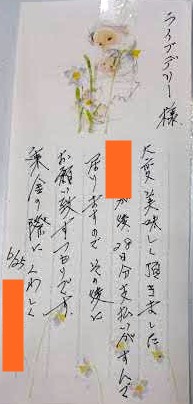 ライブデリー様
大変美味しく頂きました
が後、28日分支払い済んで
居りますので その後に
お願い致すつもりです。
集金の際に くわしく
6/25